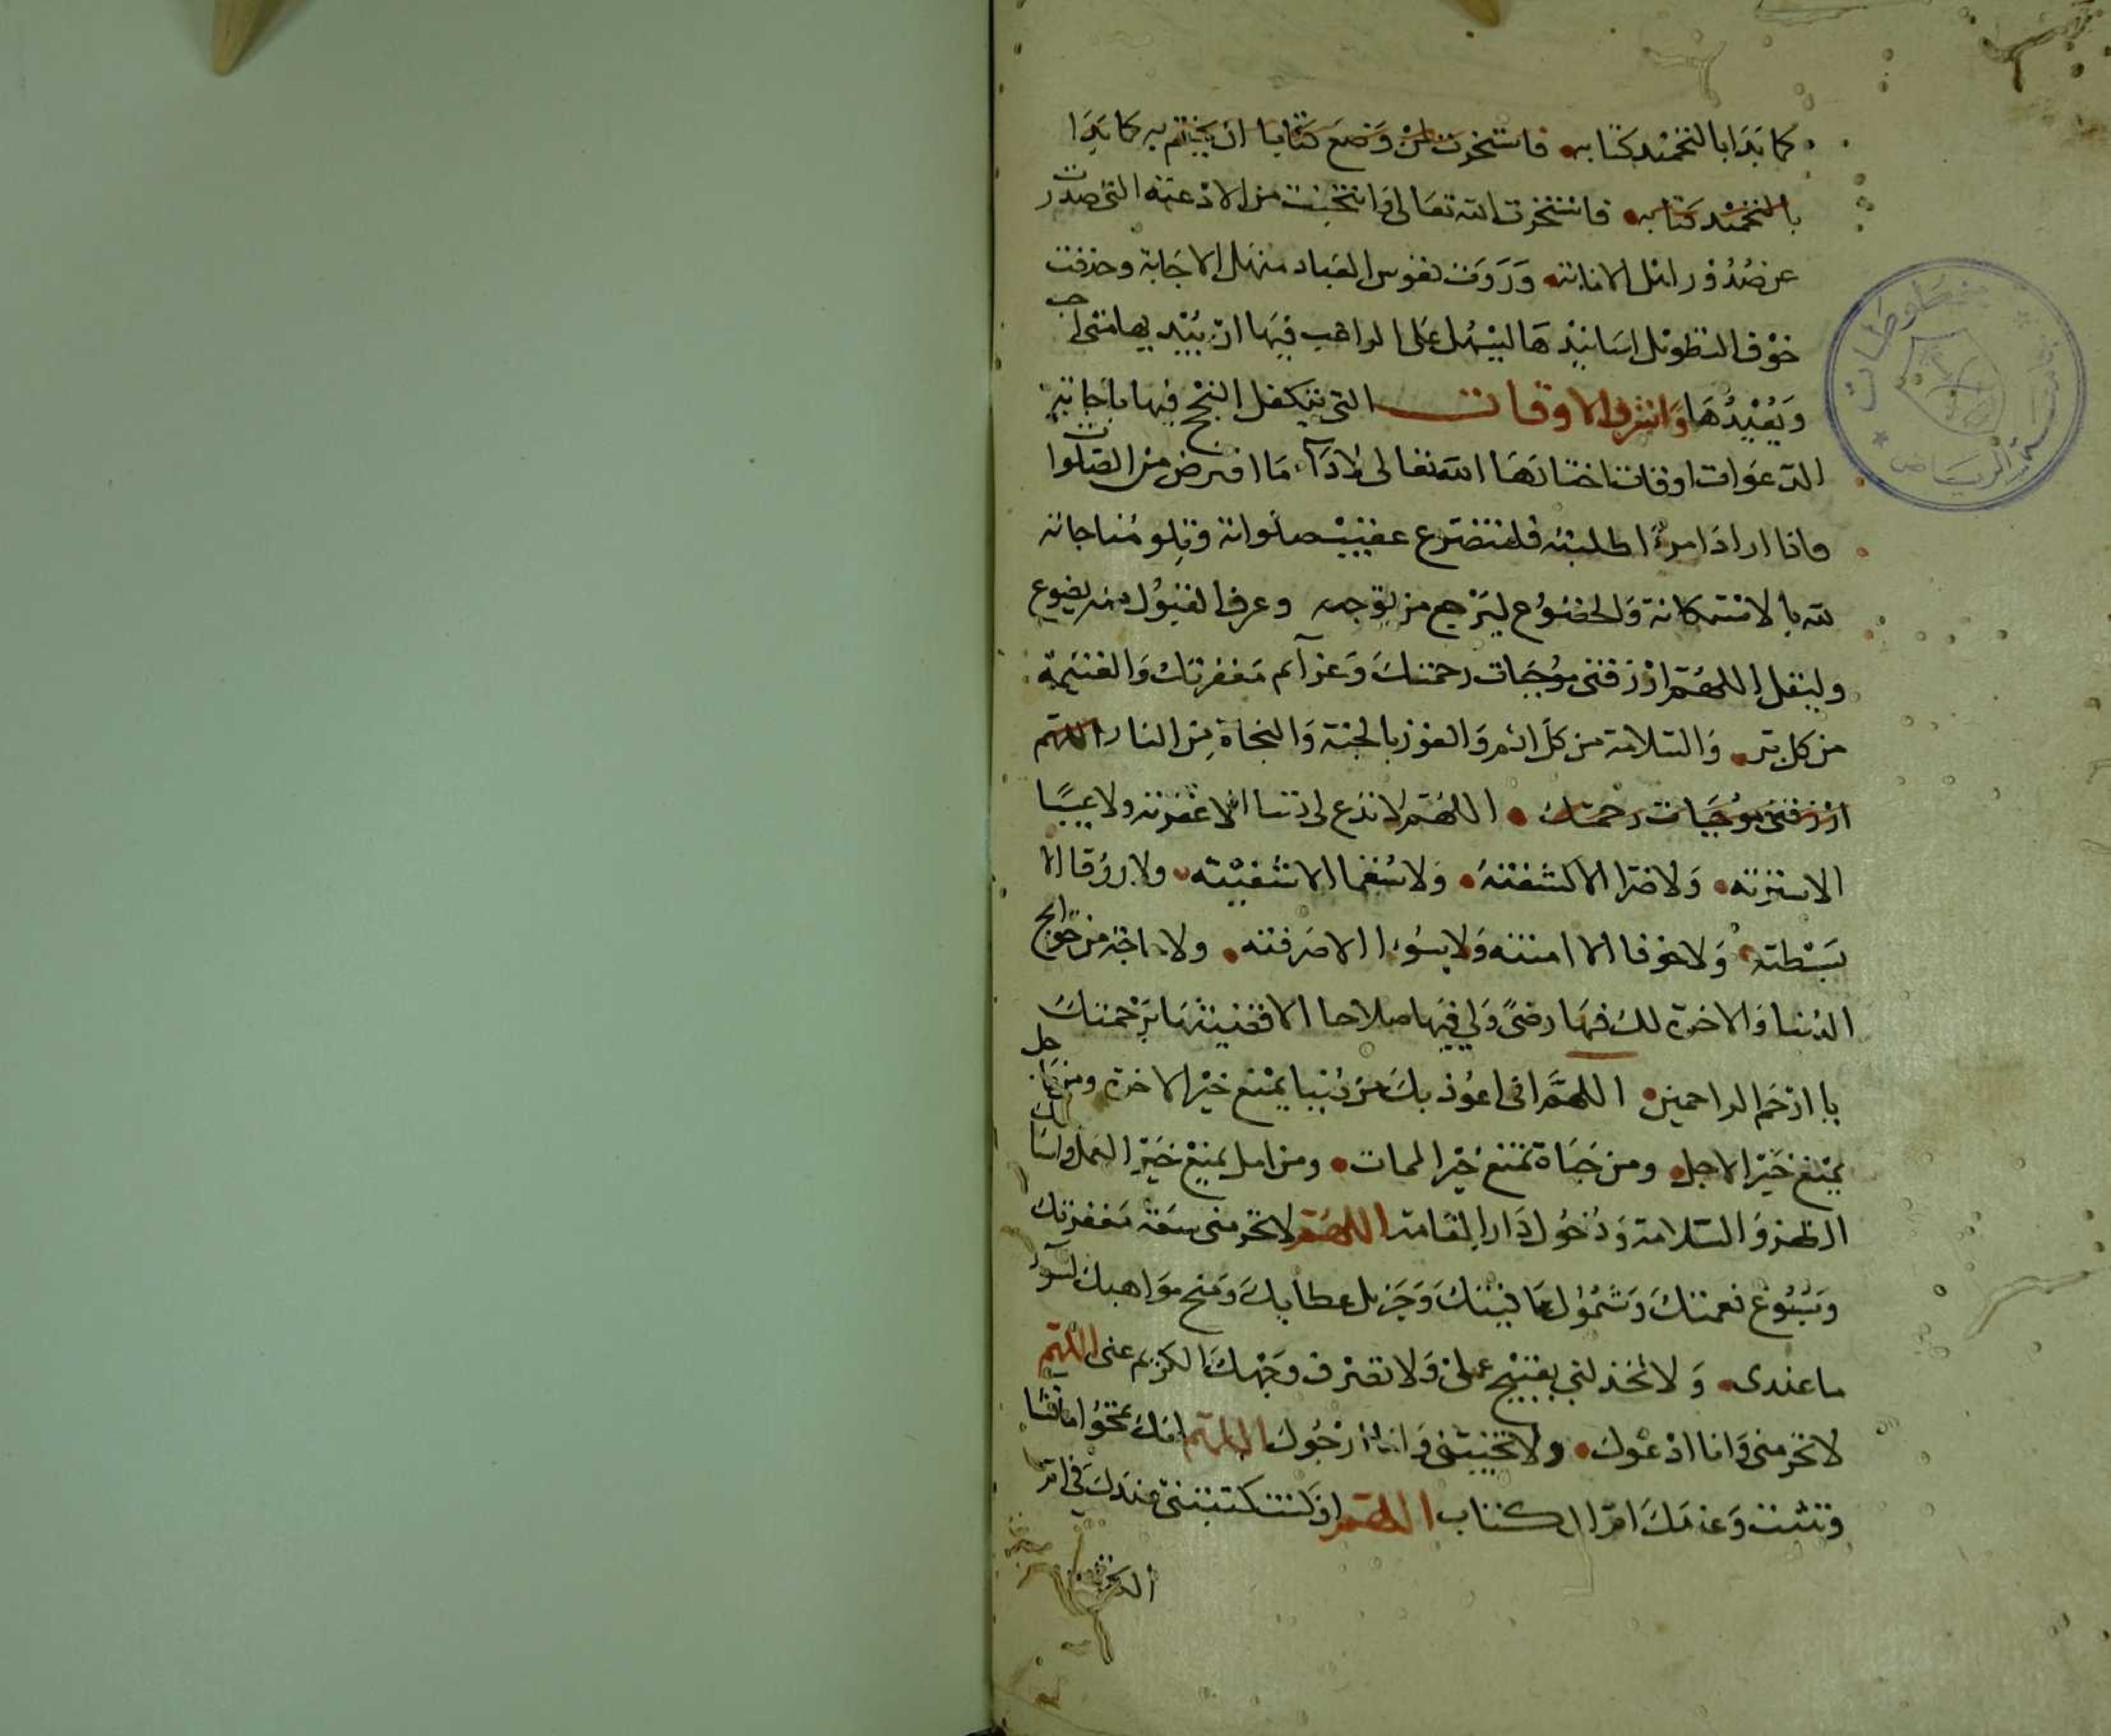 كما بَدَا بالتحميد كتابه فاستخرت لمن وضع كتابا ان يختم به كما بَدَا
بالتحميد كتابه فاستخرت الله تعالى وانتخبت من الادعية التى صدرت
عن صُدُور اهل الانابة وَرَوَت نفوس العباد منهل الاجَابة وحذفت
خوْف التطويل اسَانيدهَا ليسهل على الراغب فيها ان يُبْديها متى احب
وَيُعيْدُهَا وَاشرف الاوقات التى يتكفل النجح فيها باجابة
الدعوات اوقات اختارَهَا الله تعالى لادَآء مَا افترض من الصّلوات
فاذا ارادَ امرءٌ طلبته فليتضرع عقيبْ صلواته وتِلو مُناجاته
لله بالاستكانة وَالخضوُع ليَرْجح من يوجه وعرف القبوُل منه يضوع
وليقل اللهُمّ ارْزقنى موُجبَات رحمتكَ وَعزآئم مَغفرتك وَالغنيمة
من كل بر وَالسّلامة من كل اثم وَالفوز بالجنة وَالنجاة مِن النار اللهم
ارْزقنى موُجبَات رحمتك اللهُمّ لا تدَع لى ذنبا الا غفرته ولا عيبًا
الا سترته وَلا ضرا الا كشفتهُ وَلا سُقما الا شفيْته ولا رزقا الا
بَسْطته وَلا خوفا الا امنته وَلا سُوءا الا صَرفته ولا حاجة من حَوائج
الدُنيا وَالاخرة لك فيهَا رضىً وَلي فيَها صلاحا الا قضيتهَا بَرَحمتكَ
يا ارْحَم الراحمين اللهمَّ انى اعوُذ بكَ من دُنيا يمْنع خيْر الاخرة ومن عاجل
يمْنع خَيْر الاجل ومن حَيَاة تمْنع خيْر الممات ومن امل يمنعْ خَيْر العمل واسَالك
الظفر وَالسّلامة وَدُخوُل دَار المقامة اللهُمّ لا تحرمنى سعَة مَغفرتك
وَسُبُوغ نعمتكَ وَشمُوْل عَافيتكَ وَجَزيل عطايكَ وَمنح موَاهبك لسوء
ما عندى وَلا تخذلني بقبيْح عملىْ وَلا تصْرف وَجْهكَ الكريم عنى اللهم
لا تحرمنى وَانا ادعْوك ولا تخيّبنى وَانا ارْجُوكَ اللهم انك تمحُوا ما تشا
وتثبت وَعندَكَ امّ الكتاب اللهم ان كنت كتبتنى عندَك في ام
الكتاب
مخطوطات
الرياض